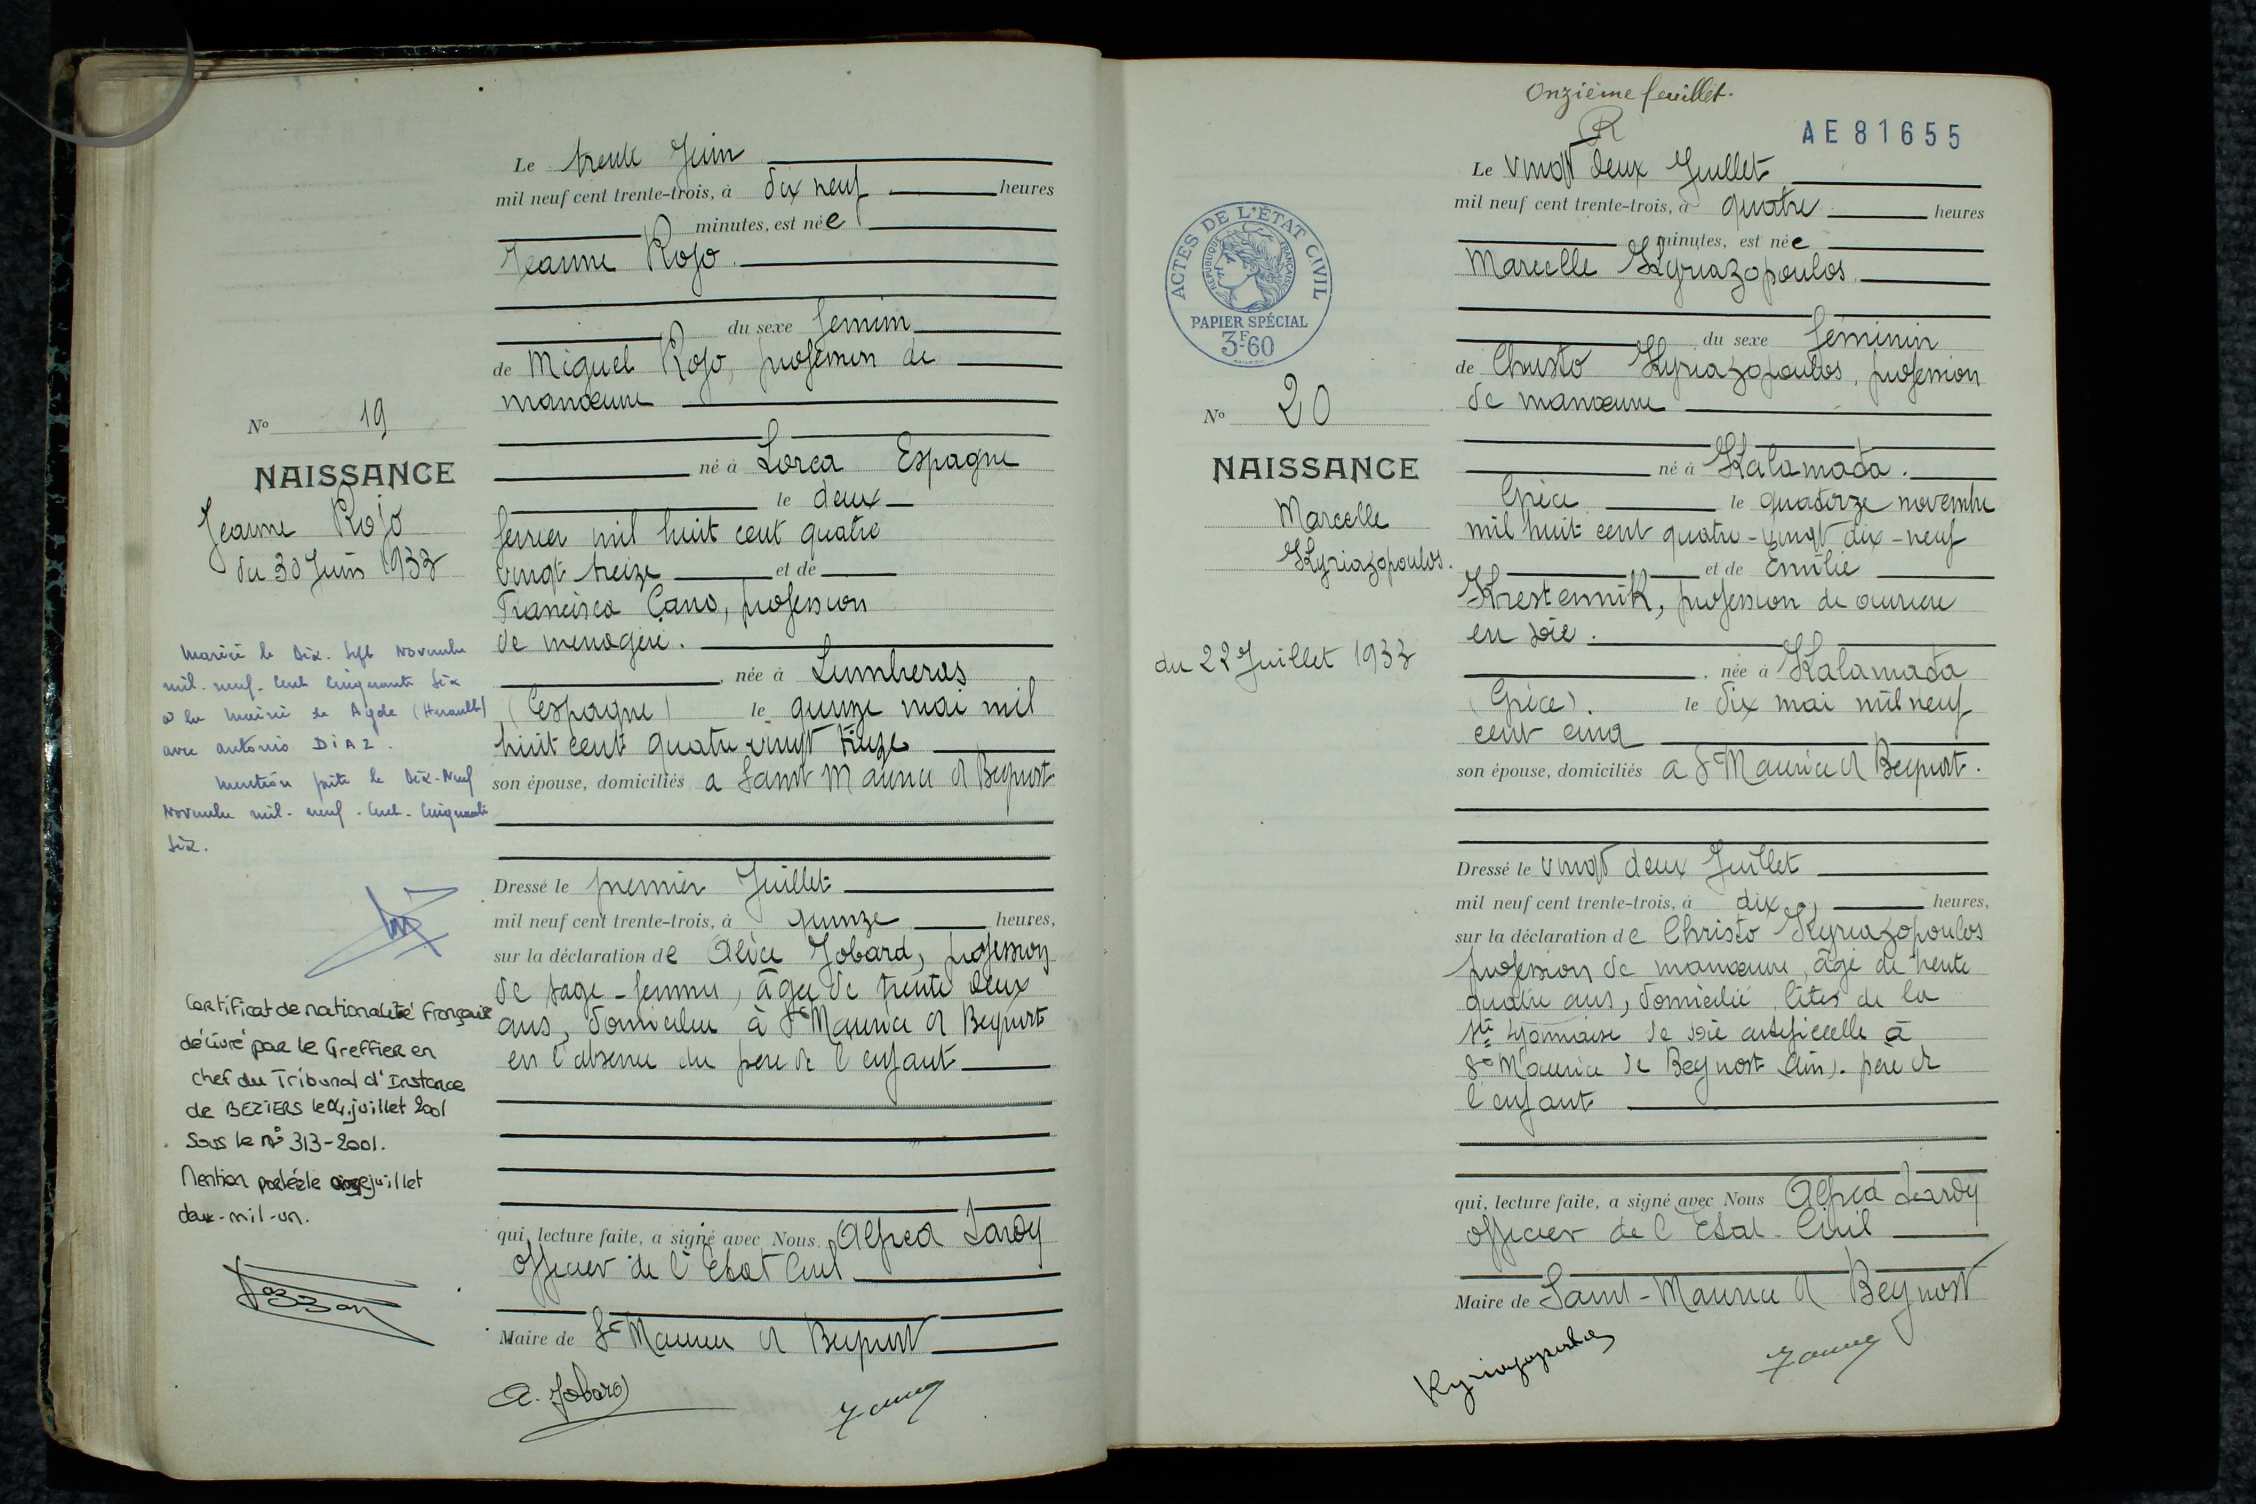 Le trente Juin
mil neuf cent trente-trois, à dix neuf heures
minutes, est née
Jeanne Rojo.
du sexe feminin
de Miguel Rojo, profession de
manœuvre
né à Lorca Espagne
le deux
fevrier mil huit cent quatre
vingt treize et de
Francisca Cano, profession
de menagère.
, née à Lumbreras
(Espagne) le quinze mai mil
huit cent quatre vingt
son épouse, domiciliés a Saint Maurice d Beynost
Dressé le premier Juillet
mil neuf cent trente-trois, à quinze heures,
sur la déclaration de Alice Jobard, profession
de sage-femme, âgée de trente deux
ans, domiciliée à St Maurice d Beynost
en l'absence du père de l enfant
qui, lecture faite, a signé avec Nous Alfred Lardy
officier de l'Etat Civil
Maire de St Maurice d Beynost
A. Jobard
No 19
NAISSANCE
Jeanne Rojo
du 30 Juin 1933
Mariée le Dix-Sept Novembre
mil-neuf-Cent Cinquante Six
à la Mairie de Agde (Herault)
avec Antonio DIAZ.
Mention faite le Dix-Neuf
Novembre mil-neuf-Cent-Cinquante
Six.
Certificat de nationalité Française
délivré par le Greffier en
chef du Tribunal d'Instance
de BEZIERS le 04 juillet 2001
Sous le n° 313-2001.
Mention portée le onze juillet
deux-mil-un.
Onzième feuillet.
AE81655
Le vingt deux Juillet
mil neuf cent trente-trois, à quatre heures
minutes, est née
Marcelle Kyriazopoulos.
du sexe féminin
de Christo Kyriazopoulos, profession
de manœuvre
né à Kalamada.
Grèce le quatorze novembre
mil huit cent quatre-vingt dix-neuf
et de Emilie
Krestennik, profession de ouvriere
en soie.
, née à Kalamada
(Grèce). le dix mai mil neuf
cent cinq
son épouse, domiciliés a St Maurice d Beynost.
Dressé le vingt deux Juillet
mil neuf cent trente-trois, à dix heures,
sur la déclaration de Christo Kyriazopoulos
profession de manœuvre, âgé de trente
quatre ans, domicilié cités de la
Sté Lyonnaise de soie artificielle à
St Maurice de Beynost (Ain). père de
l enfant
qui, lecture faite, a signé avec Nous Alfred Lardy
officier de l'Etat-Civil
Maire de Saint-Maurice d Beynost
ACTES DE L'ÉTAT CIVIL
RÉPUBLIQUE FRANÇAISE
PAPIER SPÉCIAL
3F60
No 20
NAISSANCE
Marcelle
Kyriazopoulos.
du 22 Juillet 1933